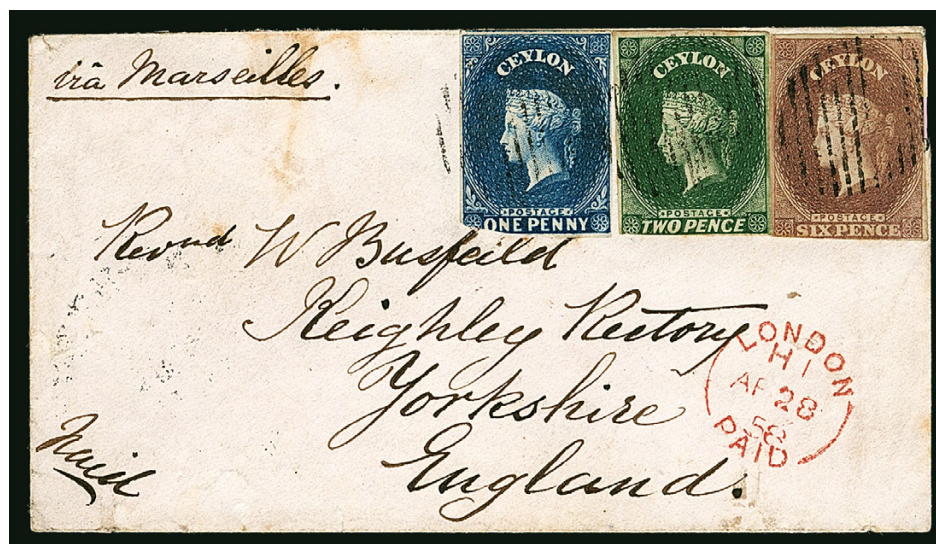 via Marseilles.
CEYLON
POSTAGE
ONE PENNY
CEYLON
POSTAGE
TWO PENCE
CEYLON
POSTAGE
SIX PENCE
Revnd W Busfeild
Keighley Rectory
Yorkshire
England.
Paid
LONDON
H 1
AP 28
58
PAID